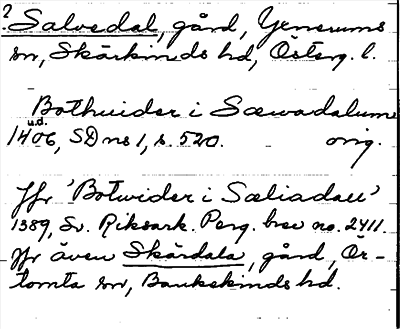 ? Salvedal, gård, Yenerums
sn, Skärkinds hd, Österg. l.
Bothuider i Sæwadalum
u.d.
1406, SD ns 1, s. 520. orig.
Jfr 'Botwider i Sæliadall'
1389, Sv. Riksark. Perg. brev no. 2411.
Jfr även Skärdala, gård, Ör-
tomta sn, Bankekinds hd.